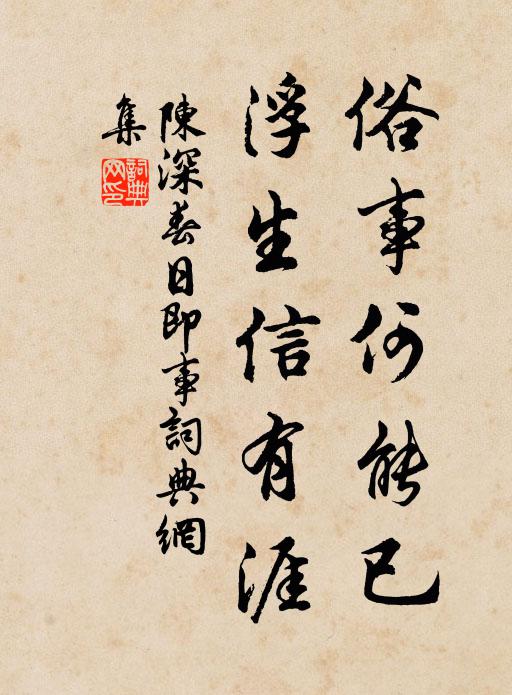 俗事何能已
浮生信有涯
陳深春日即事詞典網
集
詞典
网印